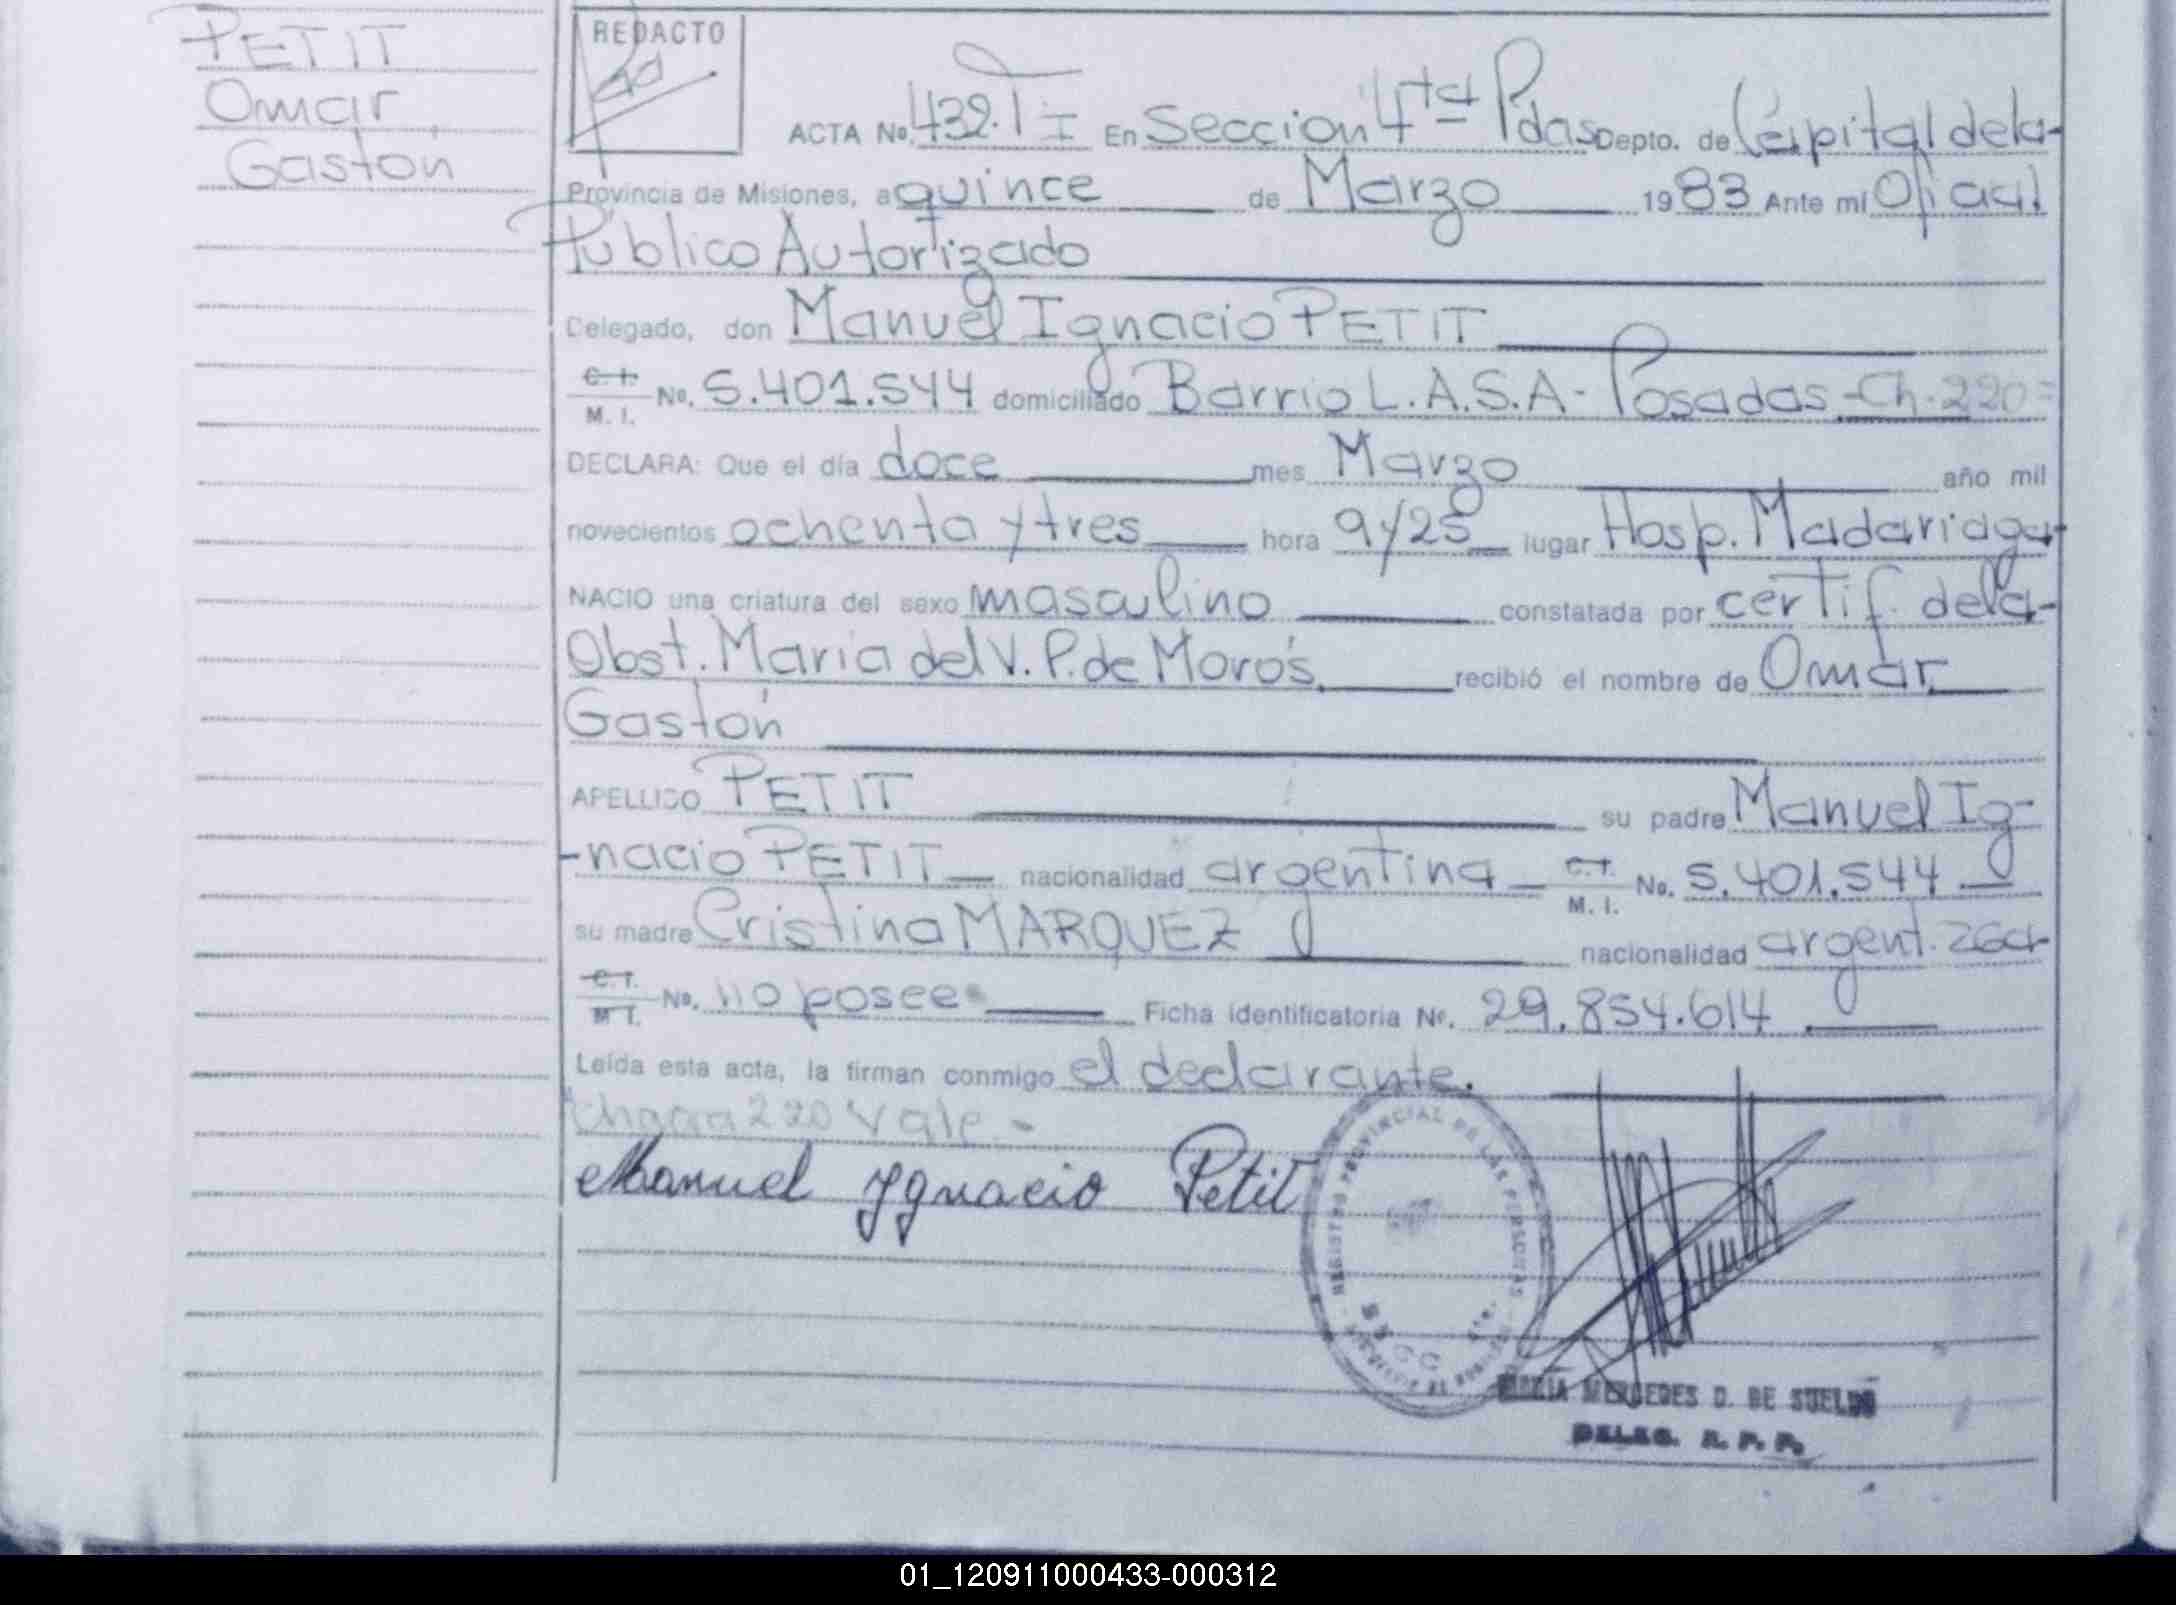 PETIT
Omar
Gastón
REDACTO
ACTA No. 432.T I En Seccion 4ta Pdas Depto. de Capital de la-
Provincia de Misiones, a quince de Marzo 1983 Ante mí Oficial
Público Autorizado
Delegado, don Manuel Ignacio PETIT
C. I. M. I. No. 5.401.544 domiciliado Barrio L.A.S.A- Posadas-Ch.220=
DECLARA: Que el día doce mes Marzo año mil
novecientos ochenta y tres hora 9y25 lugar Hosp. Madariaga-
NACIO una criatura del sexo masculino constatada por certif. de la-
Obst. Maria del V. P. de Morós. recibió el nombre de Omar
Gastón
APELLIDO PETIT su padre Manuel Ig-
-nacio PETIT nacionalidad argentina C. I. M. I. No. 5.401.544
su madre Cristina MARQUEZ nacionalidad argent. 26a-
C. I. M. I. No. no posee Ficha identificatoria No. 29.854.614
Leída esta acta, la firman conmigo el declarante.
chacra 220 Vale.-
Manuel Ygnacio Petit
REGISTRO PROVINCIAL DE LAS PERSONAS
MARIA MERCEDES D. DE SUELDO
DELEG. R. P. P.
01_120911000433-000312